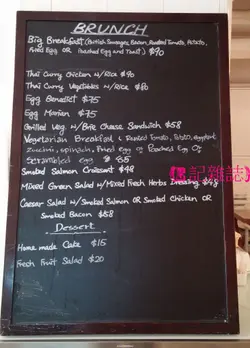 BRUNCH
Big Breakfast (British Sausages, Bacon, Roasted Tomato, Potato,
Fried Egg OR Poached Egg and Toast) $90
Thai Curry Chicken w/Rice $90
Thai Curry Vegetables w/Rice $80
Egg Benedict $75
Egg Marian $75
Grilled Veg. w/Brie Cheese Sandwich $58
Vegetarian Breakfast (Roasted Tomato, Potato, eggplant
zuccini, spinach, Fried egg or Poached Egg Or
Scrambled egg $85
Smoked Salmon Croissant $48
Mixed Green Salad w/Mixed Fresh Herbs Dressing $48
Caesar Salad w/Smoked Salmon OR Smoked Chicken OR
Smoked Bacon $58
Dessert
Home made Cake $15
Fresh Fruit Salad $20
記雜誌